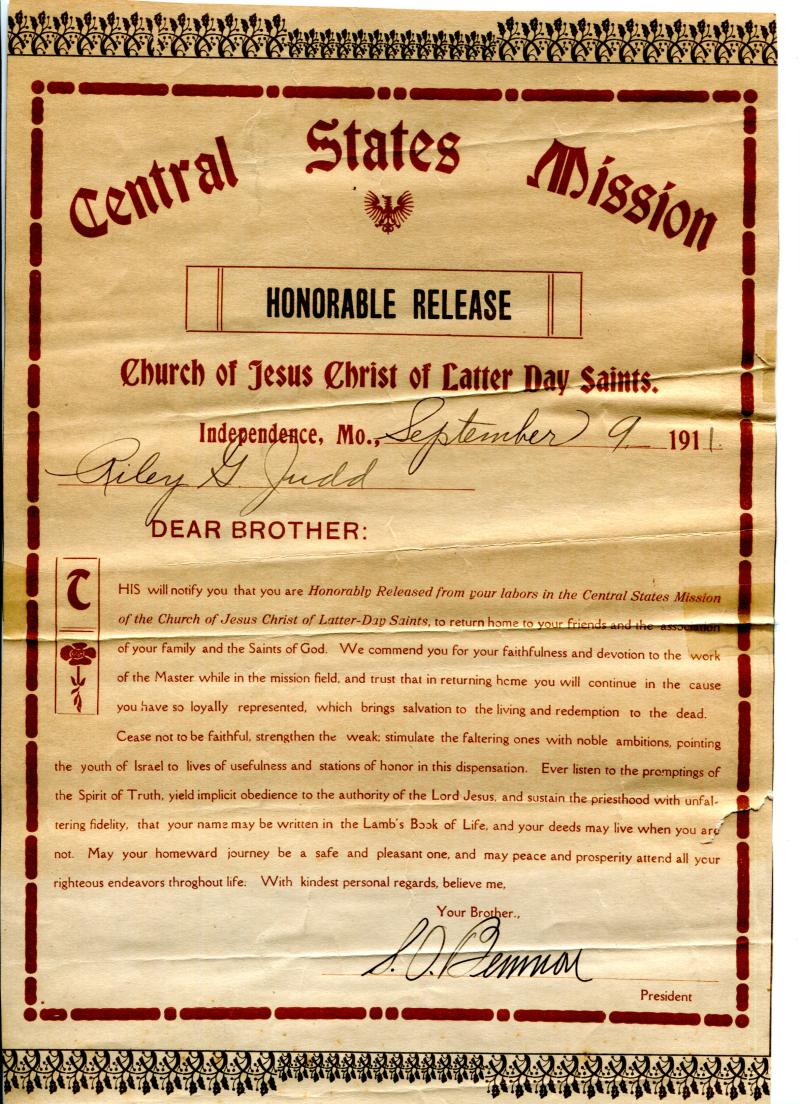 Central States Mission
HONORABLE RELEASE
Church of Jesus Christ of Latter Day Saints.
Independence, Mo., September 9 1911.
Riley G. Judd
DEAR BROTHER:
THIS will notify you that you are Honorably Released from your labors in the Central States Mission
of the Church of Jesus Christ of Latter-Day Saints, to return home to your friends and the association
of your family and the Saints of God. We commend you for your faithfulness and devotion to the work
of the Master while in the mission field, and trust that in returning home you will continue in the cause
you have so loyally represented, which brings salvation to the living and redemption to the dead.
Cease not to be faithful, strengthen the weak; stimulate the faltering ones with noble ambitions, pointing
the youth of Israel to lives of usefulness and stations of honor in this dispensation. Ever listen to the promptings of
the Spirit of Truth, yield implicit obedience to the authority of the Lord Jesus, and sustain the priesthood with unfal-
tering fidelity, that your name may be written in the Lamb's Book of Life, and your deeds may live when you are
not. May your homeward journey be a safe and pleasant one, and may peace and prosperity attend all your
righteous endeavors throghout life. With kindest personal regards, believe me,
Your Brother.,
S. O. Bennion
President